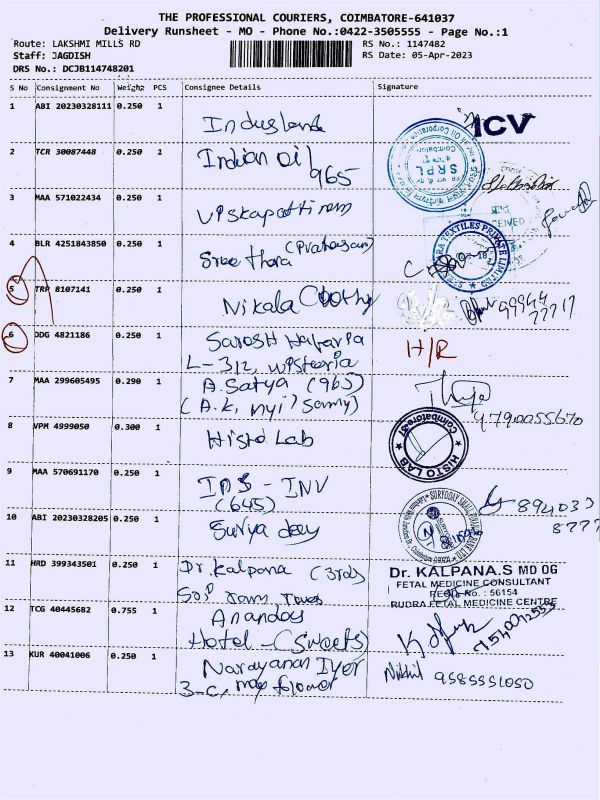 THE PROFESSIONAL COURIERS, COIMBATORE-641037
Delivery Runsheet - MO - Phone No.:0422-3505555 - Page No.:1
Route: LAKSHMI MILLS RD
RS No.: 1147482
Staff: JAGDISH
RS Date: 05-Apr-2023
DRS No.: DCJB114748201
S No Consignment No Weight PCS Consignee Details Signature
1 ABI 20230328111 0.250 1
Indusland
ICV
2 TCR 30087448 0.250 1 Indian Oil
965
SRPL
3 MAA 571022434 0.250 1
4 BLR 4251843850 0.250 1
Sree thara
5 TRP 8107141 0.250 1
Nikala
99944
77717
6 DDG 4821186 0.250 1 Sarosh
H/R
L-312,
7 MAA 299605495 0.290 1 A. Satya (965)
(A.K,
4790055670
8 VPM 4999050 0.300 1 Histo Lab
HISTO LAB
Coimbatore-37
9 MAA 570691170 0.250 1
IDS - INV
(645)
894033
8777
10 ABI 20230328205 0.250 1 Suriya dey
11 HRD 399343501 0.250 1 Dr. Kalpana (3rd)
Dr. KALPANA.S MD OG
FETAL MEDICINE CONSULTANT
REG No.: 56154
RUDRA FETAL MEDICINE CENTRE
12 TCG 40445682 0.755 1 Anandas
Hotel - (Sweets)
7540012555
13 KUR 40041006 0.250 1 Narayanan Iyer
3-C,
Nikhil 9585551050